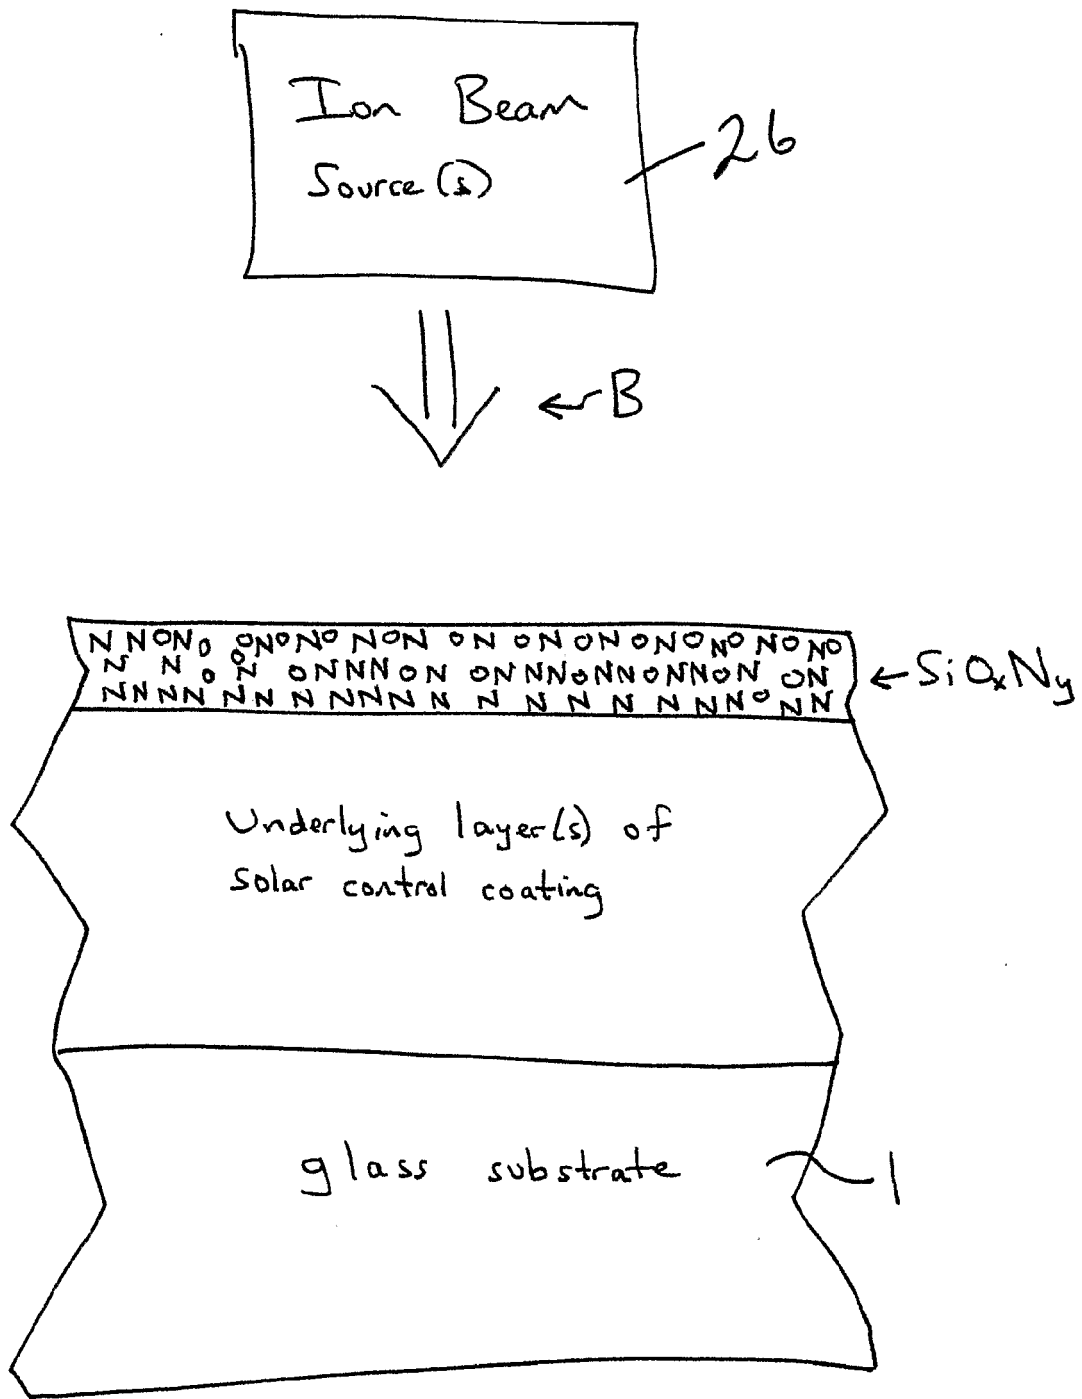 Ion Beam
Source(s)
26
B
N N O N O O N O N O N O N O N O N O N O N O N O N O N O
N N O O N O N N N O N O N N N O N N O N N O N O N
N N N N N N N N N N N N N N N N N N N O N N
SiOxNy
Underlying layer(s) of
solar control coating
glass substrate
1